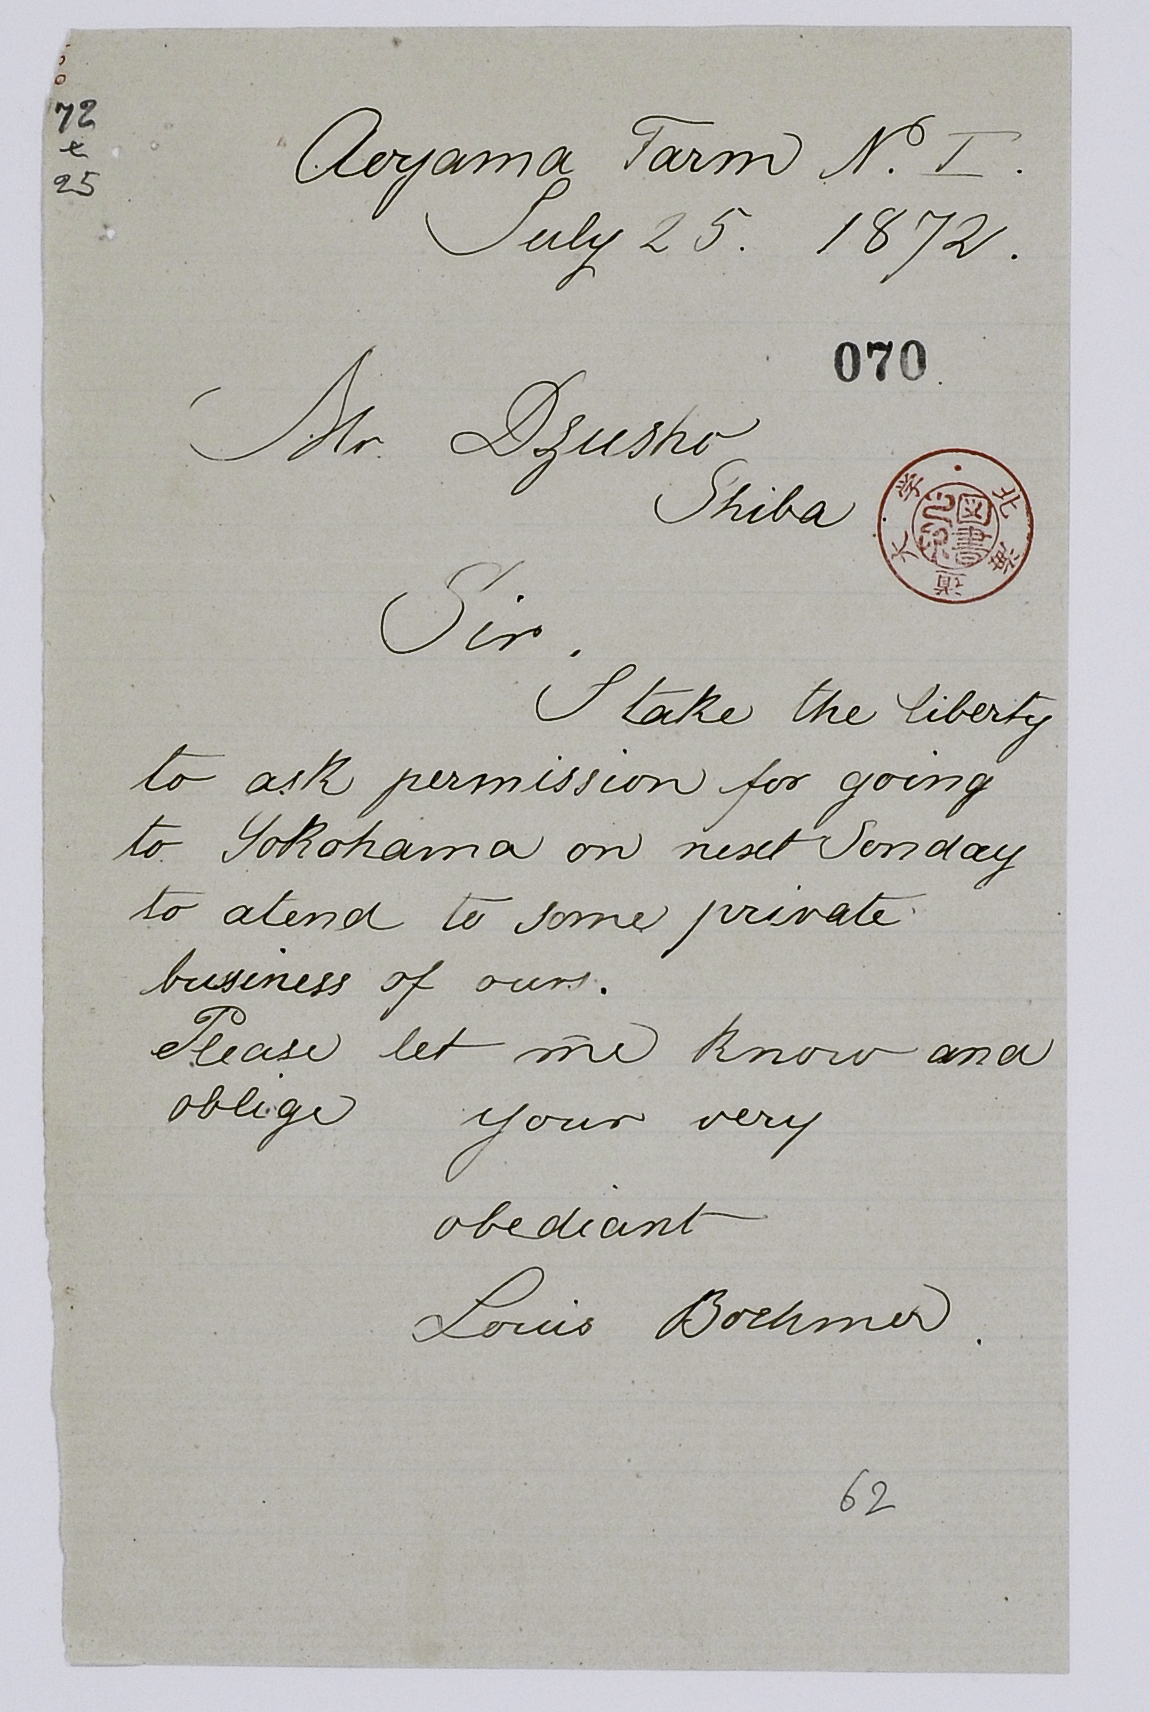 72
e
25
Aoyama Farm No. I.
July 25. 1872.
070
Mr. Dzusho
Shiba
北海道大学
図書
Sir.
I take the liberty
to ask permission for going
to Yokohama on next Sonday
to atend to some private
business of ours.
Please let me know and
oblige your very
obediant
Louis Boehmer.
62